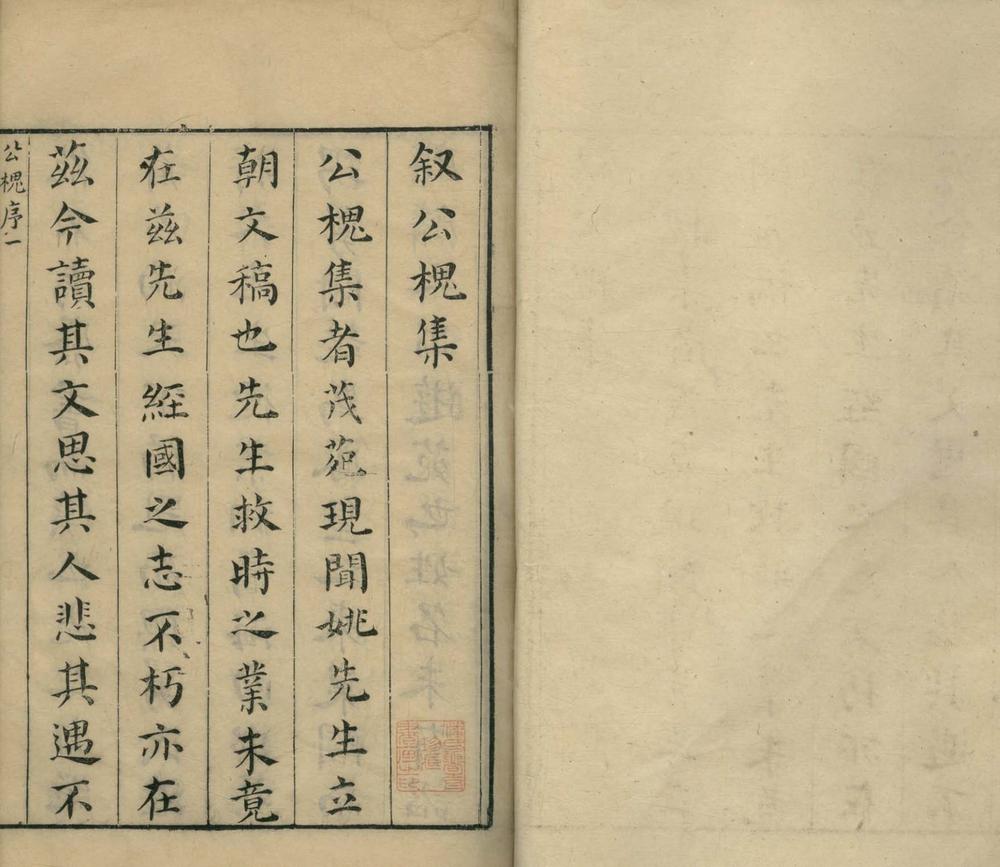 叙公槐集
公槐集者茂苑現聞姚先生立
朝文稿也先生救時之業未竟
在茲先生經國之志不朽亦在
茲今讀其文思其人悲其遇不
公槐序一